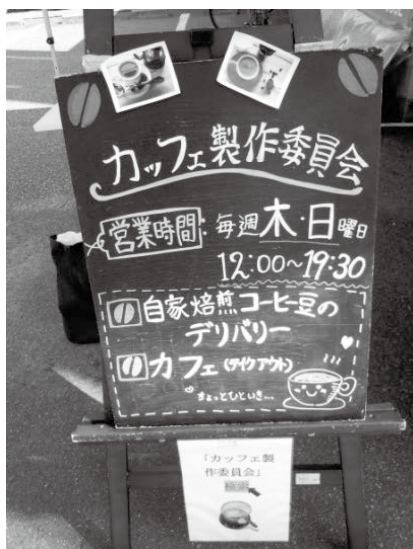 カッフェ製作委員会
営業時間:毎週木・日曜日
12:00~19:30
自家焙煎コーヒー豆の
デリバリー
カフェ(テイクアウト)
ちょっとひといき...
「カッフェ製
作委員会」
検索